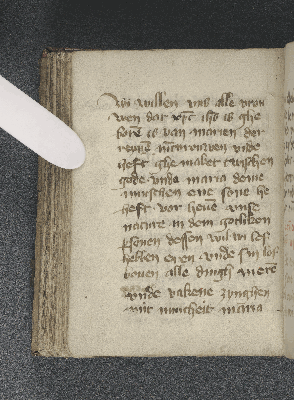 Wi willen vns alle vrou
wen dat xpc ihs is ghe
boren is van marien der
reynen iuncvrouwen vnde
heft ghe maket tuschen
gode vnde maria deme
mynschen ene sone he
heft vor heuen vnse
nature in dem gotliken
personen dessen wil wi lof
hebben eren vnde syn lof
bouen alle dingh mere
vnde valsene zynghen
mit ynnicheit maria